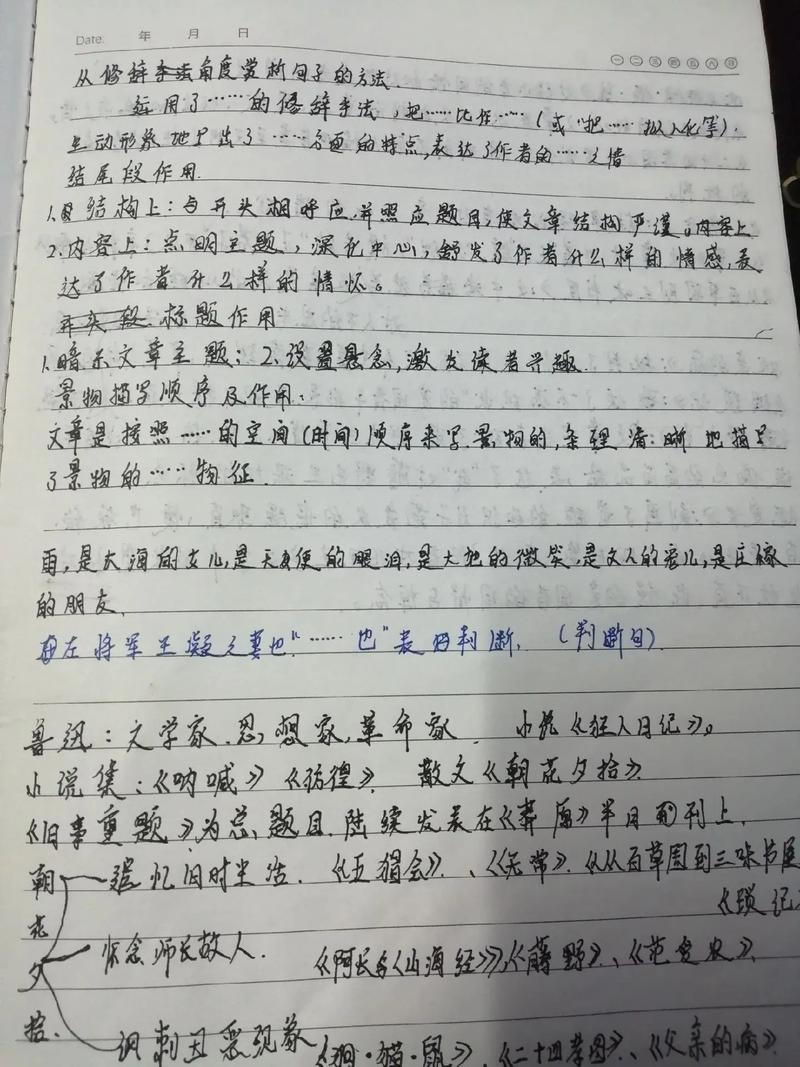 Date: 年 月 日
一 二 三 四 五 六 日
从修辞手法角度赏析句子的方法.
运用了……的修辞手法, 把……比作……(或"把……拟人化等).
生动形象地写出了……方面的特点,表达了作者的……之情
结尾段作用.
1.结构上:与开头相呼应.并照应题目,使文章结构严谨。内容上
2.内容上:点明主题,深化中心,抒发了作者什么样的情感,表
达了作者什么样的情怀。
开头段 标题作用
1.暗示文章主题: 2.设置悬念,激发读者兴趣.
景物描写顺序及作用:
文章是按照……的空间(时间)顺序来写景物的,条理清晰地描写
了景物的……物征.
雨,是大海的女儿,是天使的眼泪,是大地的微笑,是文人的宠儿,是庄稼
的朋友.
左将军王凝之妻也"……也"表判断. (判断句).
鲁迅:文学家.思想家,革命家. 小说《狂人日记》。
小说集:《呐喊》《彷徨》. 散文《朝花夕拾》.
《旧事重题》为总题目.陆续发表在《莽原》半月刊上.
朝花夕拾.
追忆旧时生活. 《五猖会》、《无常》.《从百草园到三味书屋
《琐记》
怀念师长故人. 《阿长与《山海经》》,《藤野》、《范爱农》、
讽刺丑恶现象 《狗·猫·鼠》、《二十四孝图》、《父亲的病》